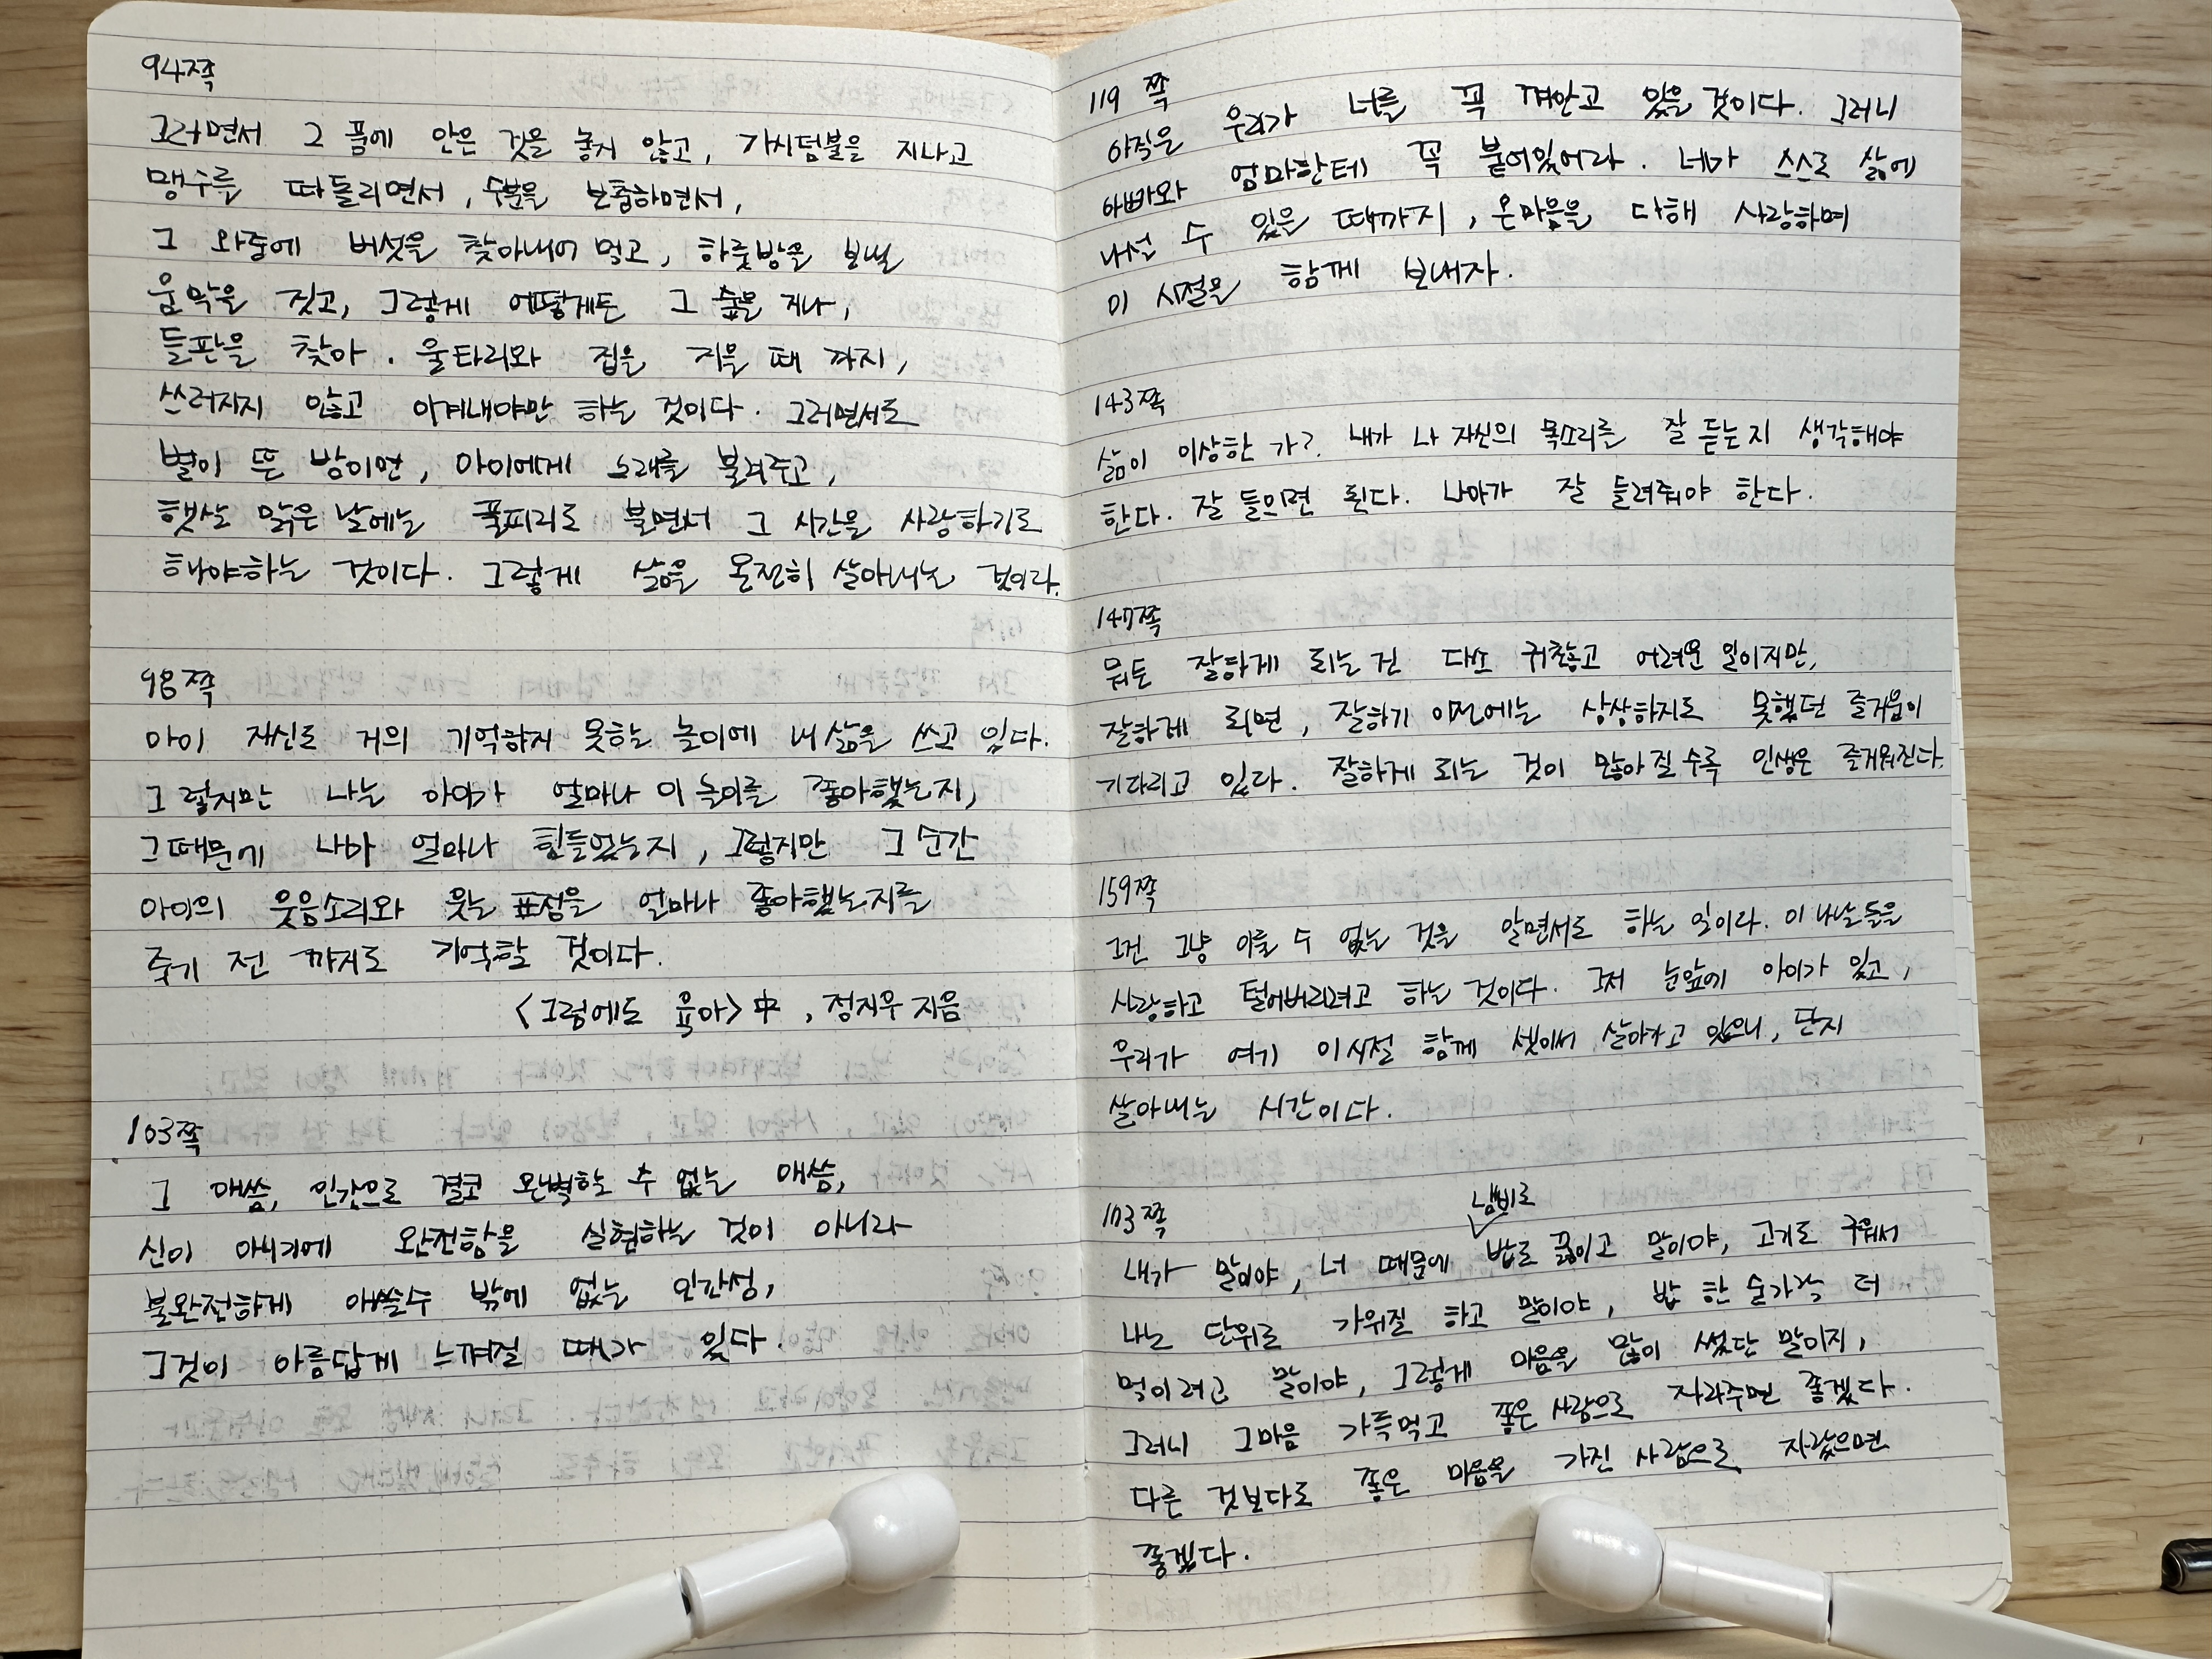 94쪽
그러면서 그 품에 안은 것을 놓지 않고, 가시덤불을 지나고
맹수를 따돌리면서, 수분을 보충하면서,
그 와중에 버섯을 찾아내어 먹고, 하룻밤을 보낼
움막을 짓고, 그렇게 어떻게든 그 숲을 지나,
들판을 찾아. 울타리와 집을 지을 때 까지,
쓰러지지 않고 이겨내야만 하는 것이다. 그러면서도
별이 뜬 밤이면, 아이에게 노래를 불러주고,
햇살 맑은 날에는 풀피리도 불면서 그 시간을 사랑하기도
해야하는 것이다. 그렇게 삶을 온전히 살아내는 것이다.
98쪽
아이 자신도 거의 기억하지 못하는 놀이에 내 삶을 쓰고 있다.
그렇지만 나는 아이가 얼마나 이 놀이를 좋아했는지,
그때문에 내가 얼마나 힘들었는지, 그렇지만 그 순간
아이의 웃음소리와 웃는 표정을 얼마나 좋아했는지를
죽기 전 까지도 기억할 것이다.
<그럼에도 육아> 中, 정지우 지음
103쪽
그 애씀, 인간으로 결코 완벽할 수 없는 애씀,
신이 아니기에 완전함을 실현하는 것이 아니라
불완전하게 애쓸수 밖에 없는 인간성,
그것이 아름답게 느껴질 때가 있다.
119 쪽
아직은 우리가 너를 꼭 껴안고 있을 것이다. 그러니
아빠와 엄마한테 꼭 붙어있어라. 네가 스스로 삶에
나설 수 있을 때까지, 온마음을 다해 사랑하며
이 시절을 함께 보내자.
143쪽
삶이 이상한 가? 내가 나 자신의 목소리를 잘 듣는지 생각해야
한다. 잘 들으면 된다. 나아가 잘 들려줘야 한다.
147쪽
뭐든 잘하게 되는 건 다소 귀찮고 어려운 일이지만,
잘하게 되면, 잘하기 이전에는 상상하지도 못했던 즐거움이
기다리고 있다. 잘하게 되는 것이 많아질수록 인생은 즐거워진다.
159쪽
그건 그냥 이룰 수 없는 것을 알면서도 하는 일이다. 이 나날들을
사랑하고 털어버리려고 하는 것이다. 그저 눈앞에 아이가 있고,
우리가 여기 이시절 함께 셋이서 살아가고 있으니, 단지
살아내는 시간이다.
173쪽
냄비로
내가 말이야, 너 때문에 밥도 끓이고 말이야, 고기도 구워서
나노 단위로 가위질 하고 말이야, 밥 한 숟가락 더
먹이려고 말이야, 그렇게 마음을 많이 썼단 말이지,
그러니 그마음 가득먹고 좋은 사람으로 자라주면 좋겠다.
다른 것보다도 좋은 마음을 가진 사람으로 자랐으면
좋겠다.